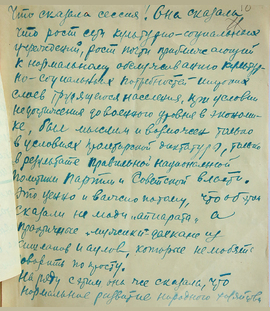 Что сказала сессия! Она сказала,
что рост сети культурно-социальных
учреждений, рост почти приближающий
к нормальному обслуживанию культур-
но-социальных потребностей широких
слоев трудящегося населения, при условии
недостижения довоенного уровня в экономи-
ке, был мыслим и возможен только
в условиях пролетарской диктатуры, только
в результате правильной национальной
политики Партии и Советской власти.
Это ценно и важно потому, что об этом
сказали не люди "аппарата" а
практичные "мужики" далеко из
и аулов, которые не любят
говорить по пусту.
На ряду с этим она же сказала, что
нормальное развитие народного хозяйства